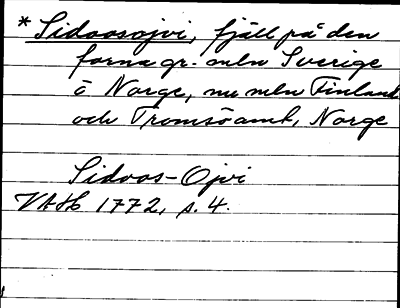 *Sidoosojvi, fjäll på den
forna gr. mln Sverige
o Norge, nu mln Finland
och Tromsö amt, Norge
Sidoos-Ojvi
VAH 1772, s. 4.